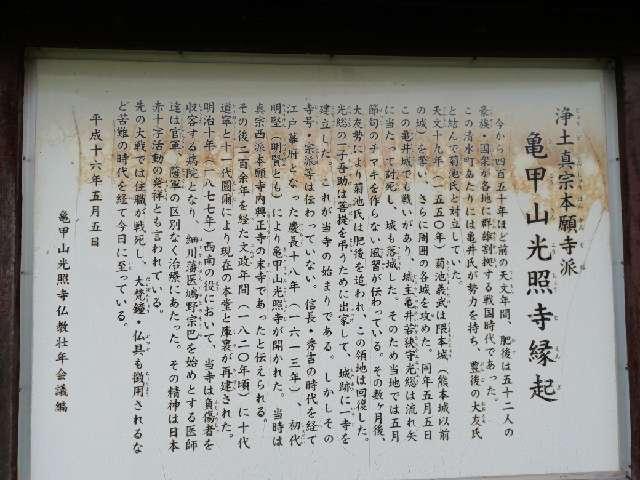 浄土真宗本願寺派
亀甲山光照寺縁起
今から四百五十年ほど前の天文年間、肥後は五十二人の
豪族・国衆が各地に群雄割拠する戦国時代であった。
この清水町あたりには亀井氏が勢力を持ち、豊後の大友氏
と結んで菊池氏と対立していた。
天文十九年（一五五〇年）菊池義武は隈本城（熊本城以前
の城）を撃い、さらに周囲の各城を攻めた。同年五月五日
この亀井城でも戦いがあり、城主亀井若狭守光総は流れ矢
に当たって討死し、城も落城した。そのため当地では五月
節句のチマキを作らない風習が伝わっている。その数ヶ月後、
大友勢により菊池氏は肥後を追われ、この領地は回復した。
光総の一子吾助は菩提を弔うために出家して、城跡に一寺を
建立した。これが当寺の始まりである。しかしその
寺号・宗派等は伝わっていない。信長・秀吉の時代を経て
江戸幕府となった慶長十八年（一六一三年）、初代
明堅（明賢とも）により亀甲山光照寺が開かれた。当時は
真宗西派本願寺内興正寺の末寺であったと伝えられる。
その後二百余年を経た文政年間（一八二〇年頃）に十代
道寧と十一代圓爾により現在の本堂と庫裏が再建された。
明治十年（一八七七年）西南の役において、当寺は負傷者を
収容する病院となり、細川藩医鳩野宗巴を始めとする医師
達は官軍、薩軍の区別なく治療にあたった。その精神は日本
赤十字活動の発祥とも言われている。
先の大戦では住職が戦死し、大梵鐘・仏具も徴用されるな
ど苦難の時代を経て今日に至っている。
平成十六年五月五日
亀甲山光照寺仏教壮年会議編